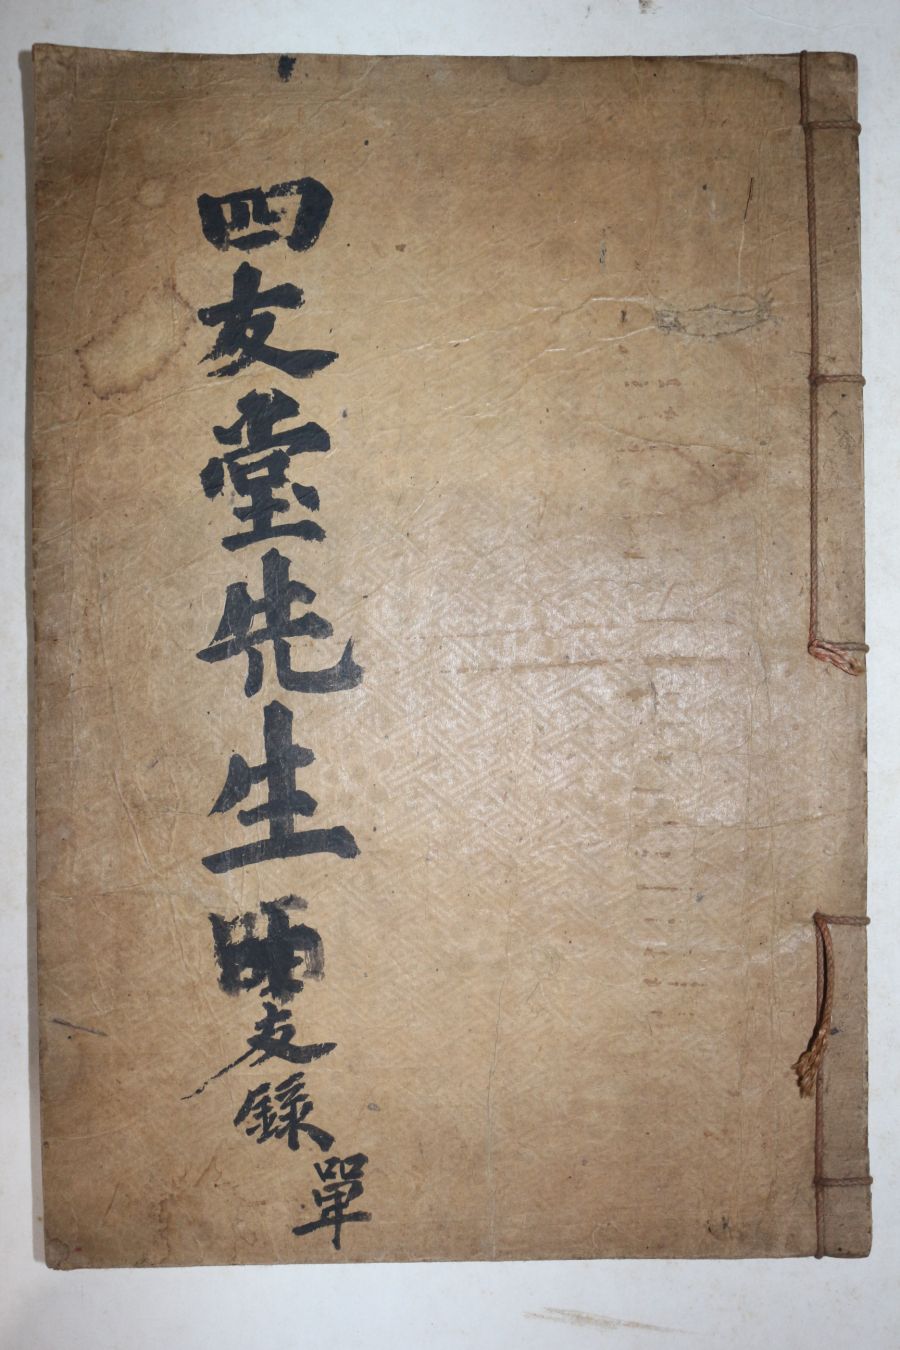 四友堂先生師友錄
單